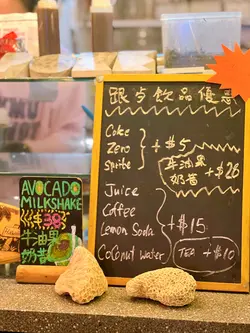 跟與飲品優惠
Coke
Zero
Sprite
+$5
牛油果
奶昔 +$26
Juice
Coffee
Lemon Soda
Coconut water
+$15
TEA +$10
AVOCADO
MILKSHAKE
$38
牛油果
奶昔